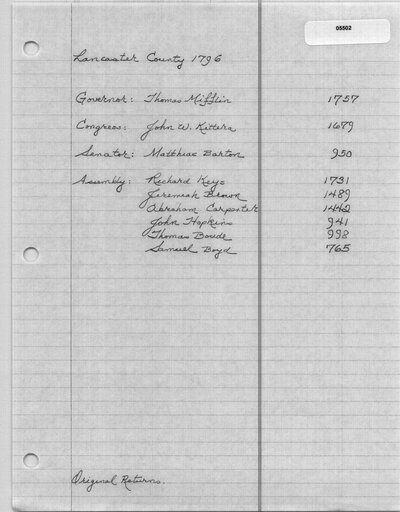 05502
Lancaster County 1796
Governor: Thomas Mifflin 1757
Congress: John W. Kittera 1679
Senator: Matthias Barton 950
Assembly: Richard Keys 1731
Jeremiah Brown 1489
Abraham Carpenter 1442
John Hopkins 941
Thomas Boude 998
Samuel Boyd 765
Original Returns.